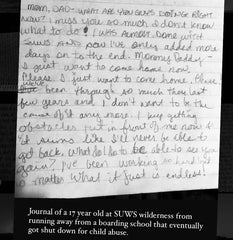 MOM, DAD- WHAT ARE YOU GUYS DOING RIGHT
NOW? I miss you so much & don't know
what to do! I WAS ALMOST DONE with
SUWS AND now I've only added more
days on to the end. Mommy Daddy-
I just want to come home now
Please I just want to come home.
been through so much these last
few years and I don't want to be the
cause of it any more. I keep getting
obstacles put in front of me now &
it seems like I'll never be able to
get back. What do I do to be able to see you
again? I've been working so hard but
no matter what it just is endless!
Journal of a 17 year old at SUWS wilderness from
running away from a boarding school that eventually
got shut down for child abuse.